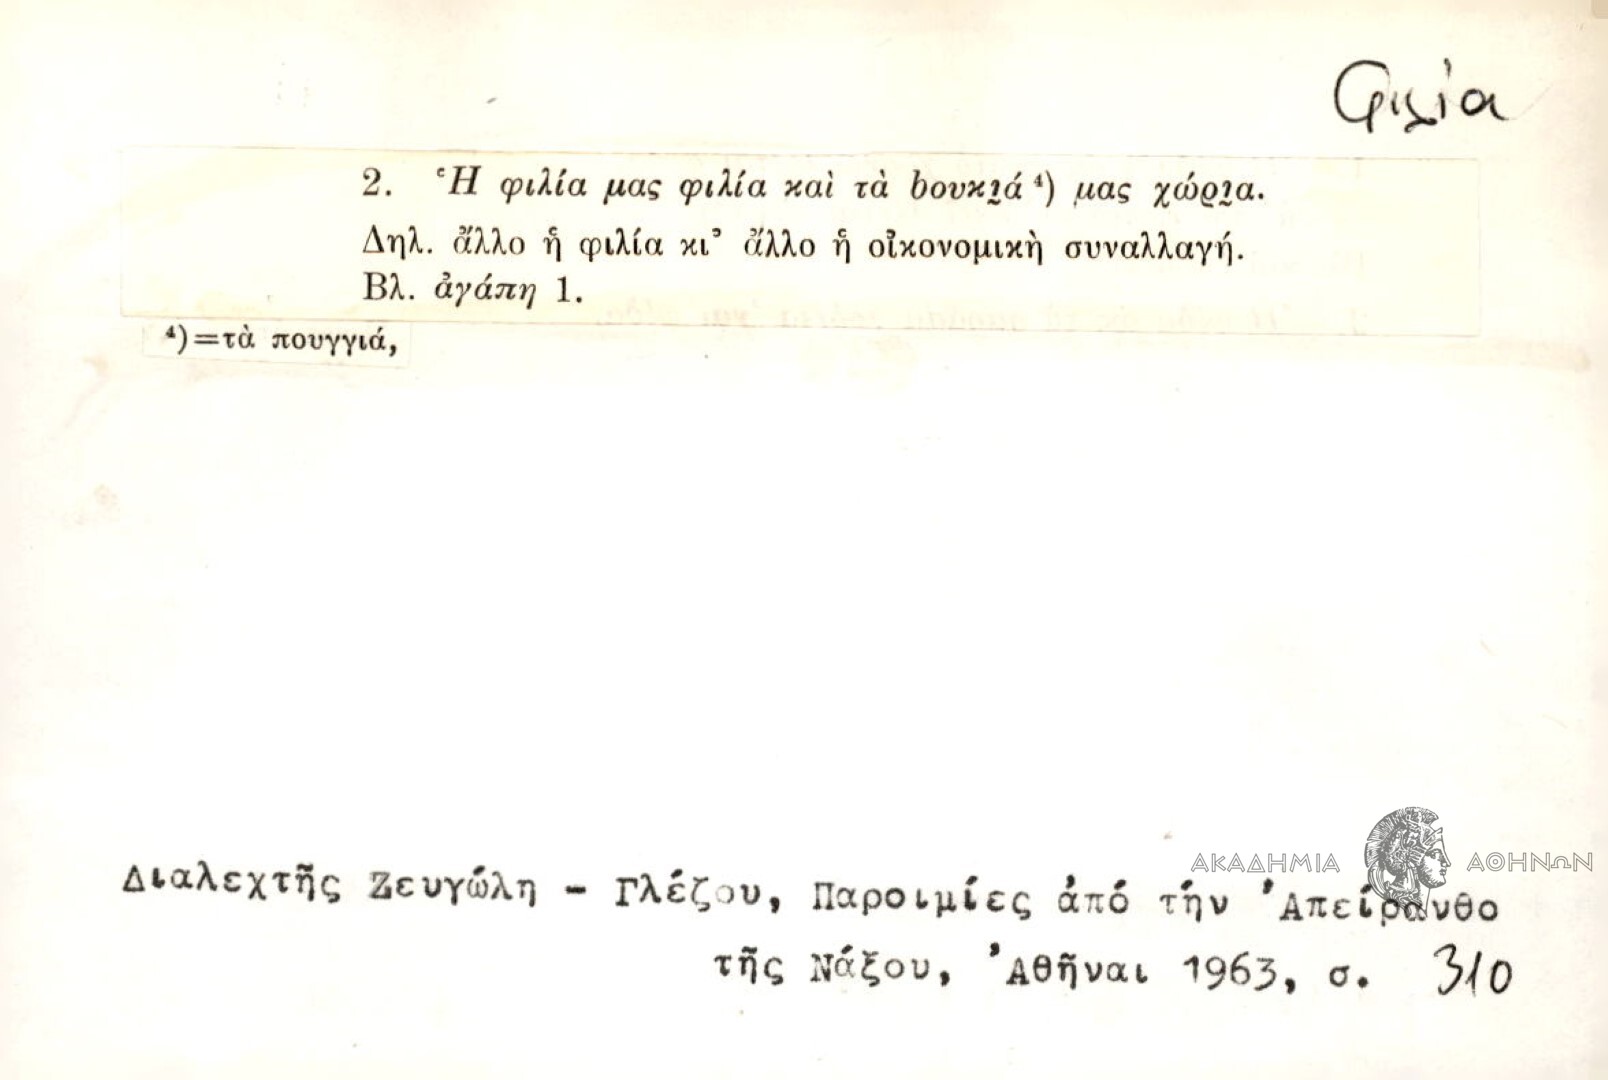 Φιλία
2. Ἡ φιλία μας φιλία καὶ τὰ bουκι̯ά ⁴) μας χώρι̯α.
Δηλ. ἄλλο ἡ φιλία κι᾿ ἄλλο ἡ οἰκονομικὴ συναλλαγή.
Βλ. ἀγάπη 1.
⁴)=τὰ πουγγιά,
ΑΚΑΔΗΜΙΑ ΑΘΗΝΩΝ
Διαλεχτῆς Ζευγώλη - Γλέζου, Παροιμίες ἀπό τήν Ἀπείρανθο
τῆς Νάξου, Ἀθῆναι 1963, σ. 310